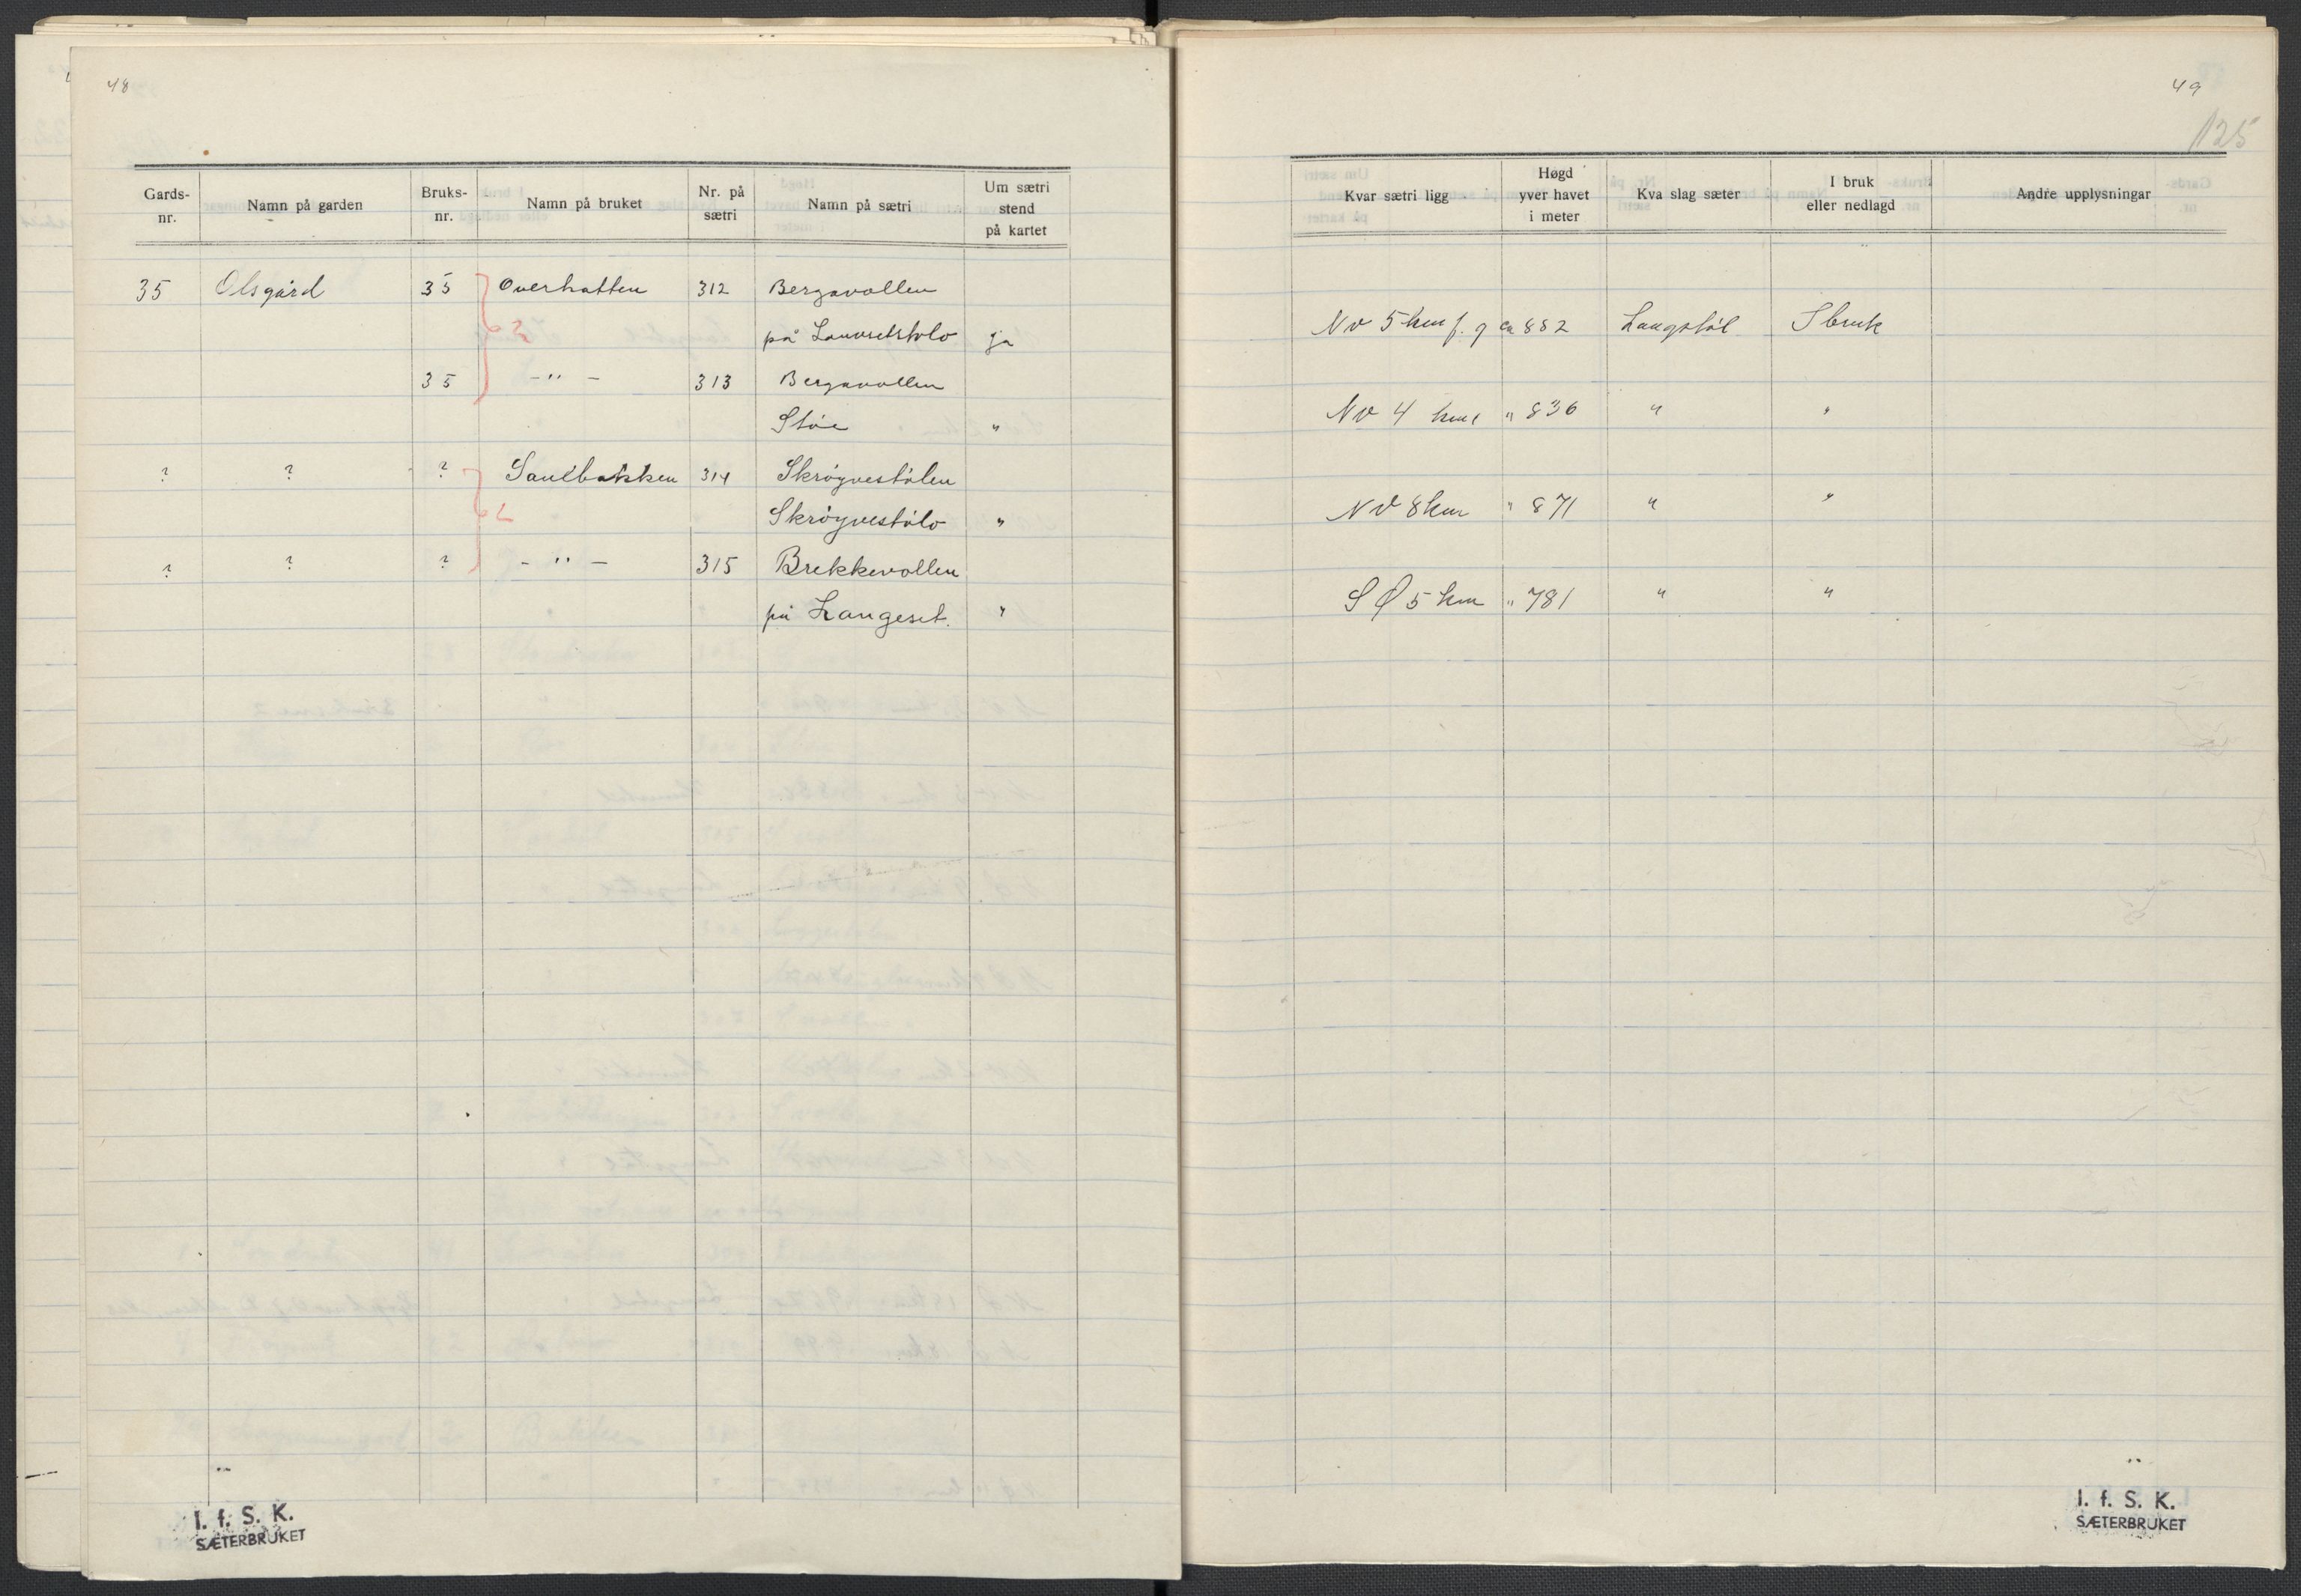 48
Gards-nr. Namn på garden Bruks-nr. Namn på bruket Nr. på sætri Namn på sætri Um sætri stend på kartet
35 Olsgård 35 Overhatten 312 Bergavollen
på ja
35 -"- 313 Bergavollen
Støe "
? ? ? Sandbakken 314 Skrøyvestølen
Skrøyvestølo "
? ? ? -"- 315 Brekkevollen
på Langeset. "
I. f. S. K.
SÆTERBRUKET
49
125
Kvar sætri ligg Høgd yver havet i meter Kva slag sæter I bruk eller nedlagd Andre upplysningar
NV 5 km f. g ca 882 Langstøl I bruk
NV 4 km " 836 " "
NV 8 km " 871 " "
S Ø 5 km " 781 " "
I. f. S. K.
SÆTERBRUKET